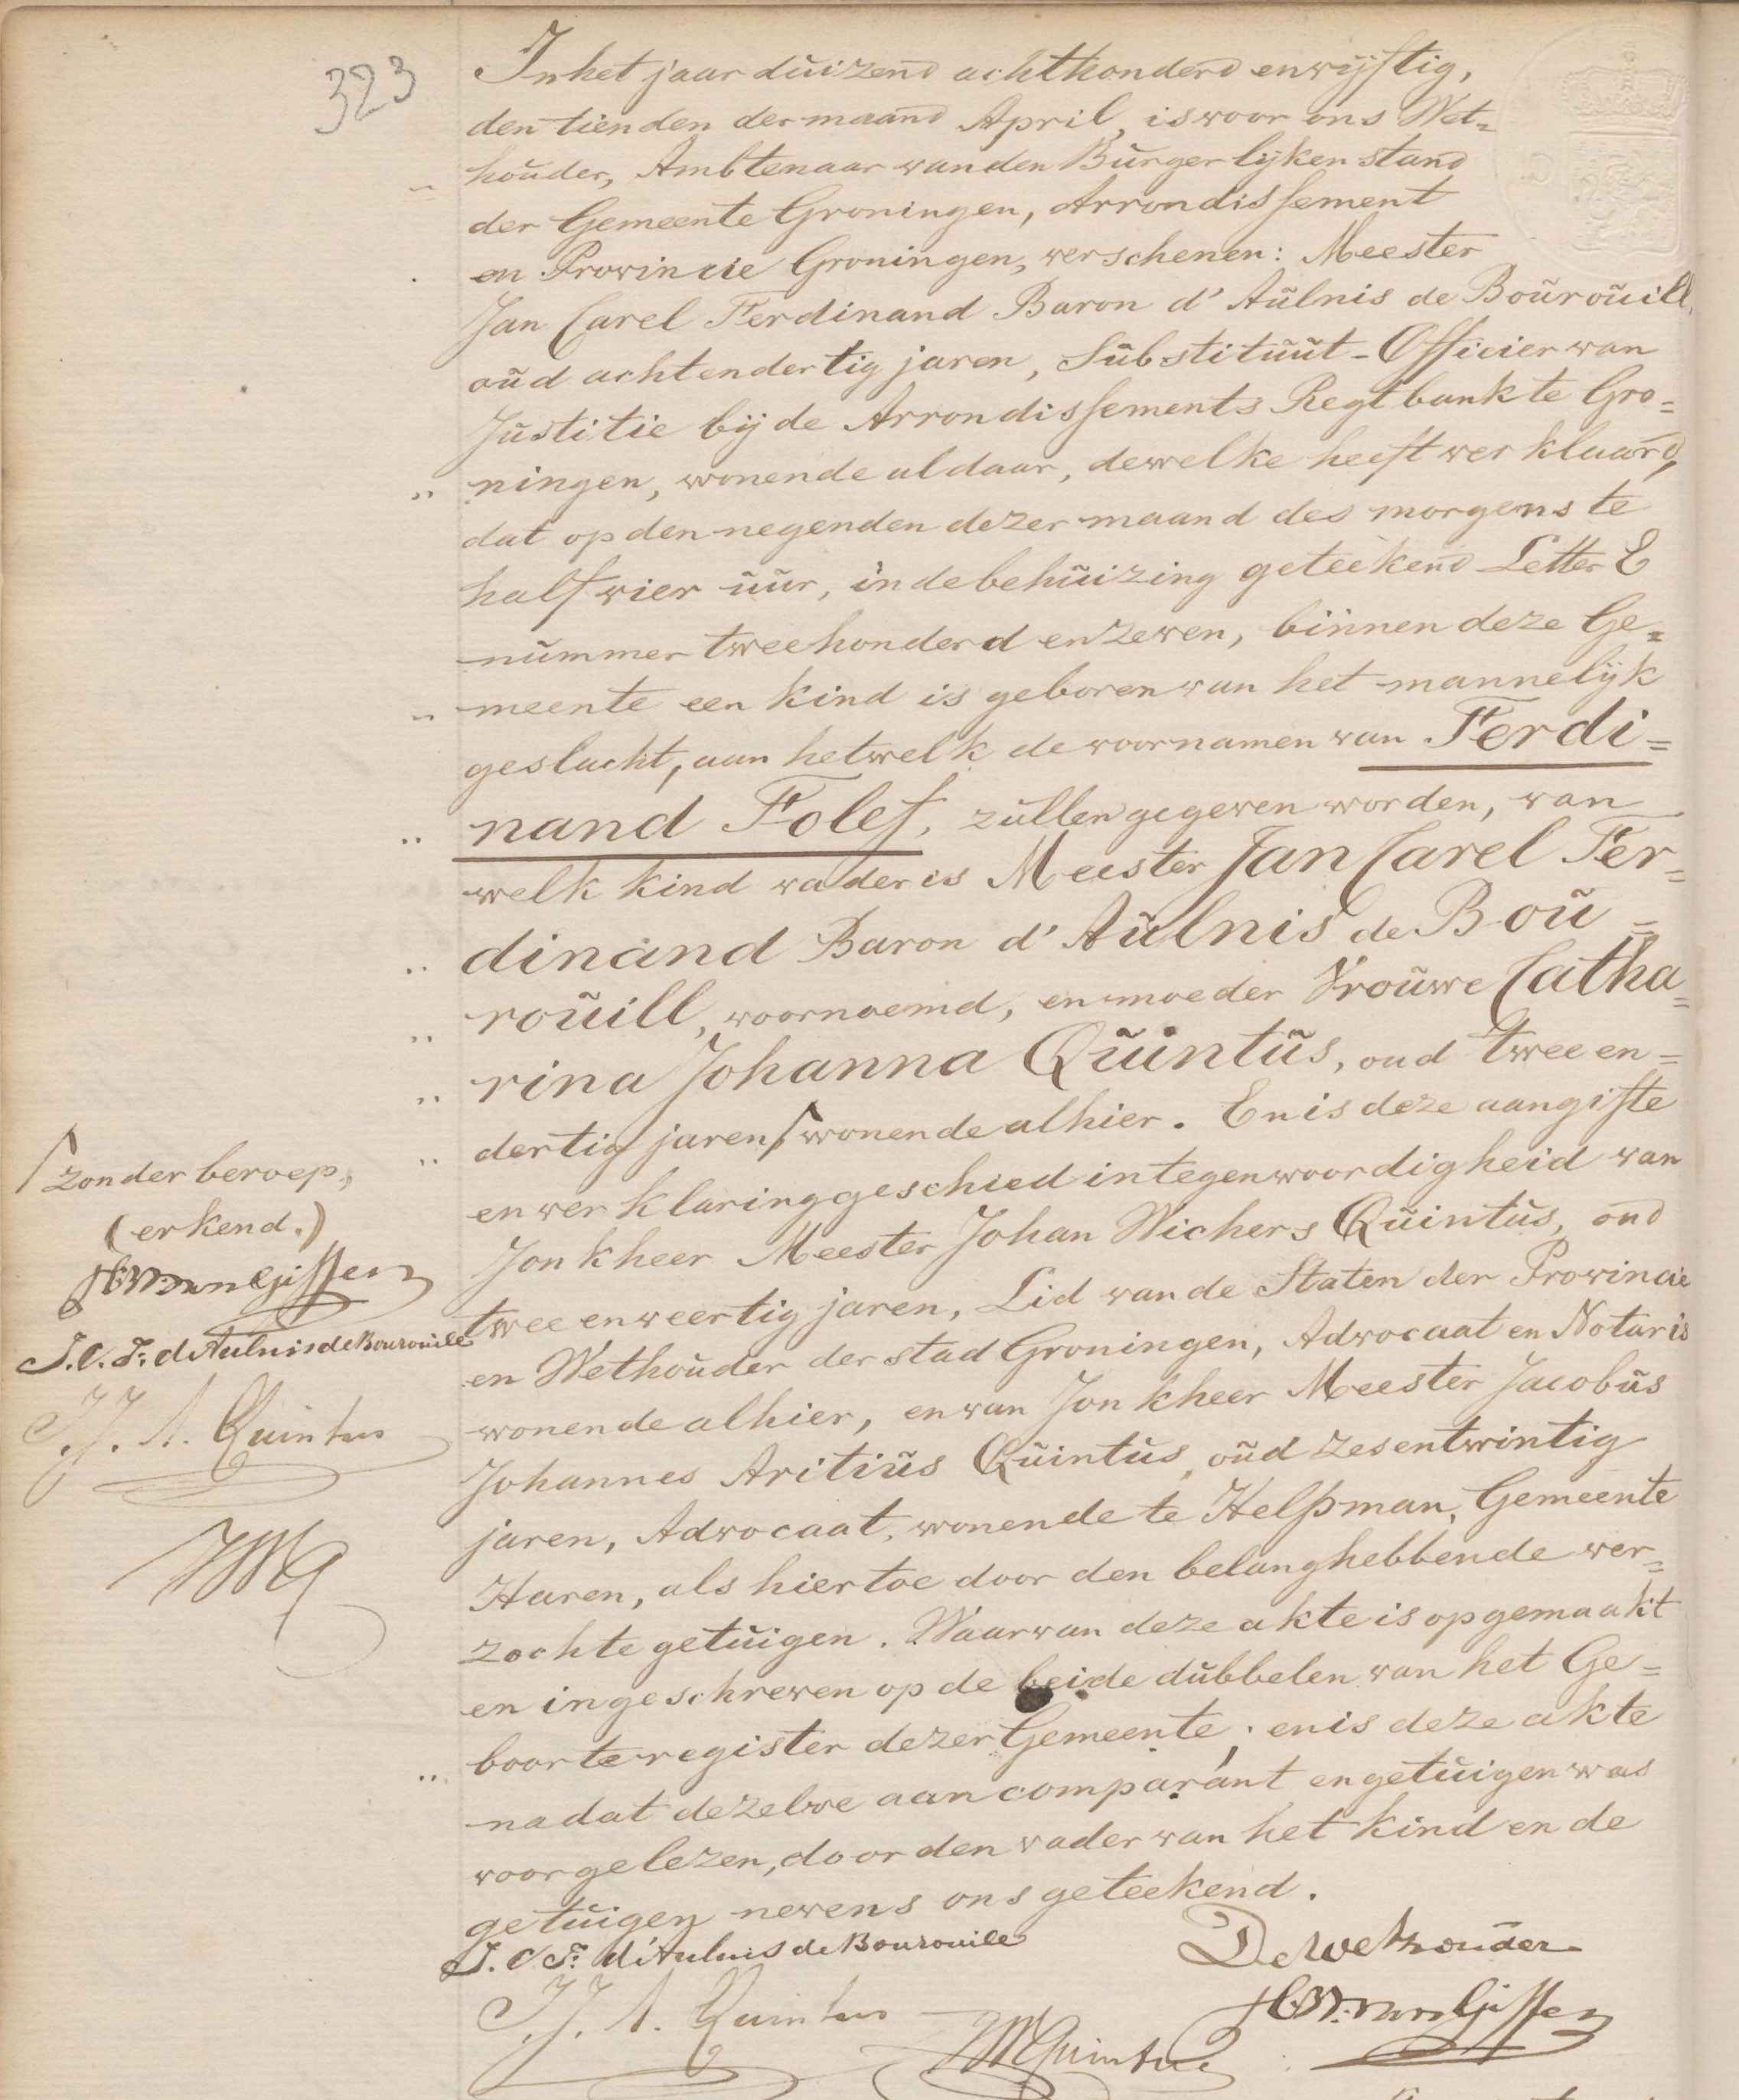 323
In het jaar duizend achthonderd en vijftig,
den tienden der maand April, is voor ons Wet=
houder, Ambtenaar van den Burgerlijken stand
der Gemeente Groningen, Arrondissement
en Provincie Groningen, verschenen: Meester
Jan Carel Ferdinand Baron d' Aulnis de Bourouill,
oud achtendertig jaren, Substituut-Officier van
Justitie bij de Arrondissements Regtbank te Gro=
ningen, wonende aldaar, dewelke heeft verklaard,
dat op den negenden dezer maand des morgens te
half vier uur, in de behuizing geteekend Letter E
nummer tweehonderd en zeven, binnen deze Ge=
meente een kind is geboren van het mannelijk
geslacht, aan hetwelk de voornamen van Ferdi=
nand Folef, zullen gegeven worden, van
welk kind vader is Meester Jan Carel Fer=
dinand Baron d' Aulnis de Bou=
rouill, voornoemd, en moeder Vrouwe Catha=
rina Johanna Quintus, oud twee en=
dertig jaren, wonende alhier. En is deze aangifte
en verklaring geschied in tegenwoordigheid van
Jonkheer Meester Johan Wichers Quintus, oud
twee en veertig jaren, Lid van de Staten der Provincie
en Wethouder der stad Groningen, Advocaat en Notaris
wonende alhier, en van Jonkheer Meester Jacobus
Johannes Aritius Quintus, oud zesentwintig
jaren, Advocaat, wonende te Helpman, Gemeente
Haren, als hiertoe door den belanghebbende ver=
zochte getuigen. Waarvan deze akte is opgemaakt
en ingeschreven op de beide dubbelen van het Ge=
boorteregister dezer Gemeente; en is deze akte
nadat dezelve aan comparant en getuigen was
voorgelezen, door den vader van het kind en de
getuigen nevens ons geteekend.
J. C. F. d'Aulnis de Bourouill
De Wethouder
J. J. A. Quintus
JWQuintus
HW van Giffen
zonder beroep,
(erkend.)
HW van Giffen
J. C. F. d'Aulnis de Bourouill
J. J. A. Quintus
JWQ